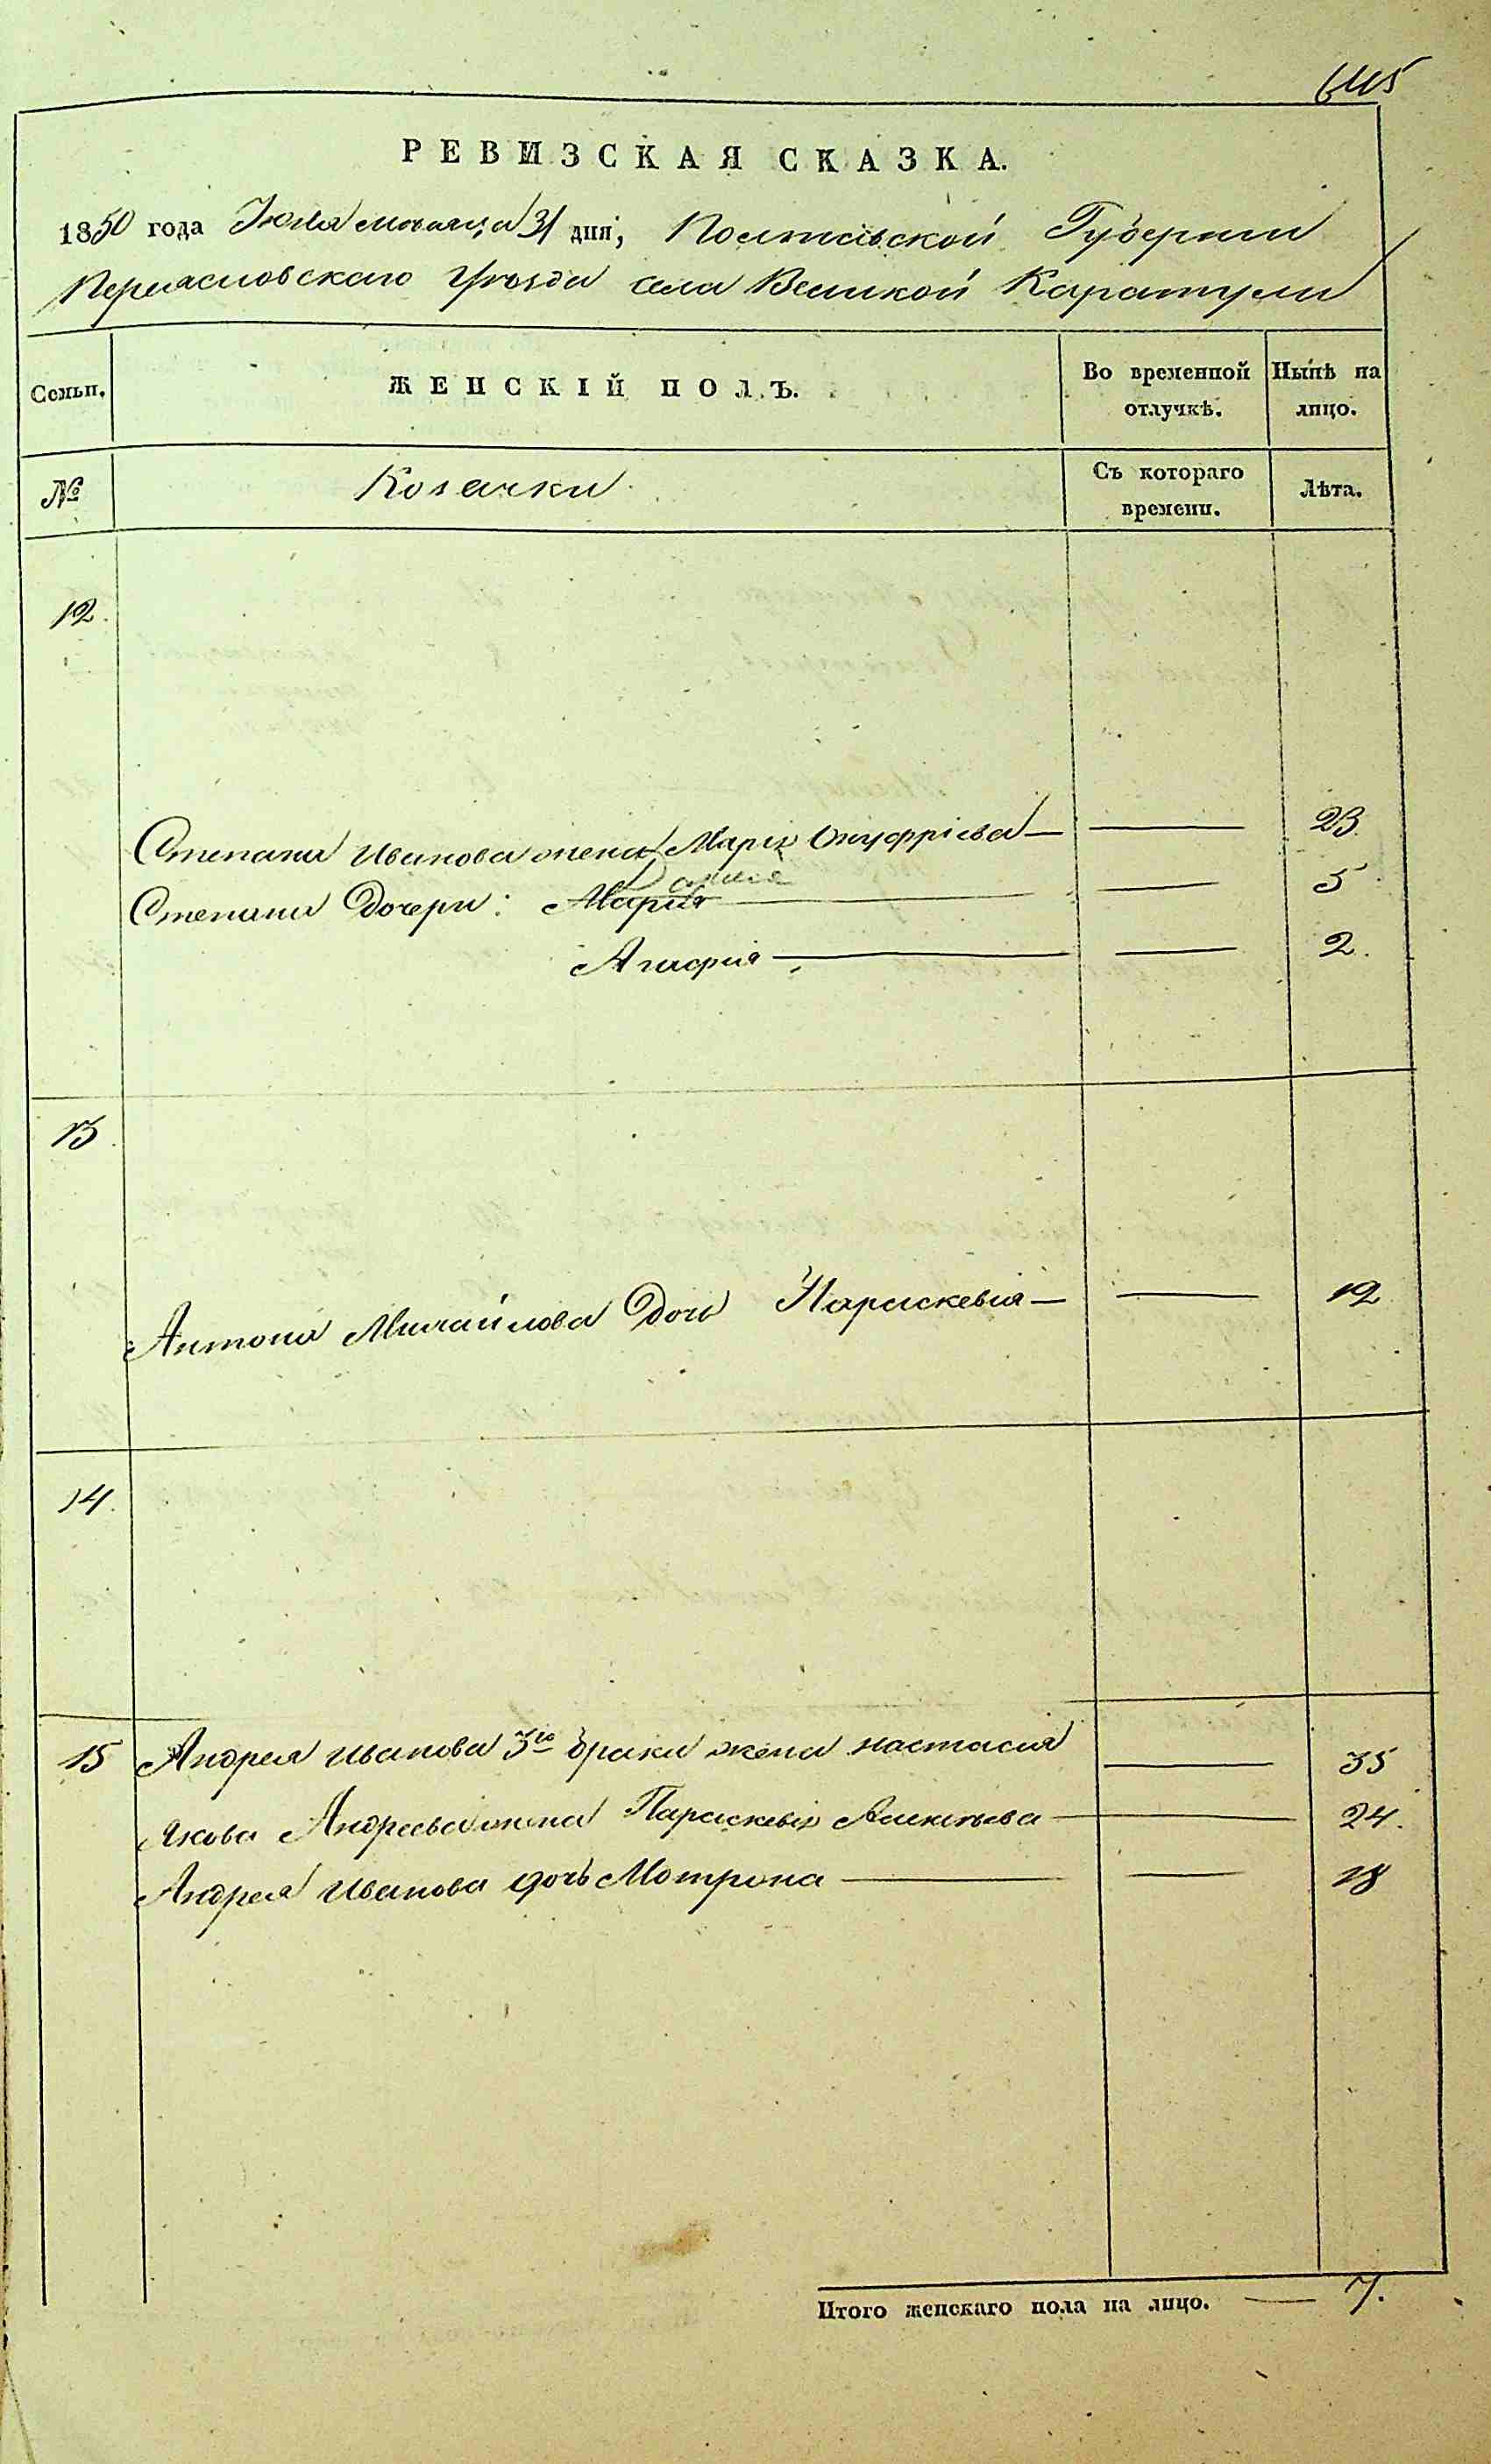 645
РЕВИЗСКАЯ СКАЗКА.
1850 года Июля месяца 31 дня, Полтавской Губернии
Переясловскаго Уѣзда села Великой Каратули
Семьи. ЖЕНСКІЙ ПОЛЪ. Во временной отлучкѣ. Нынѣ на лицо.
№ Козачки Съ котораго времени. Лѣта.
12.
Степана Иванова жена Марія Онуфріева — — 23
Степана Дочери: Мария — — 5
Агафия — — 2.
13.
Антона Михайлова Дочь Параскевия — — 12
14.
15 Андрея Иванова 3го брака жена Настасия — 35
Якова Андреева жена Параскевія Алексѣева — 24.
Андрея Иванова дочь Мотрона — — 18
Итого женскаго пола на лицо. — 7.